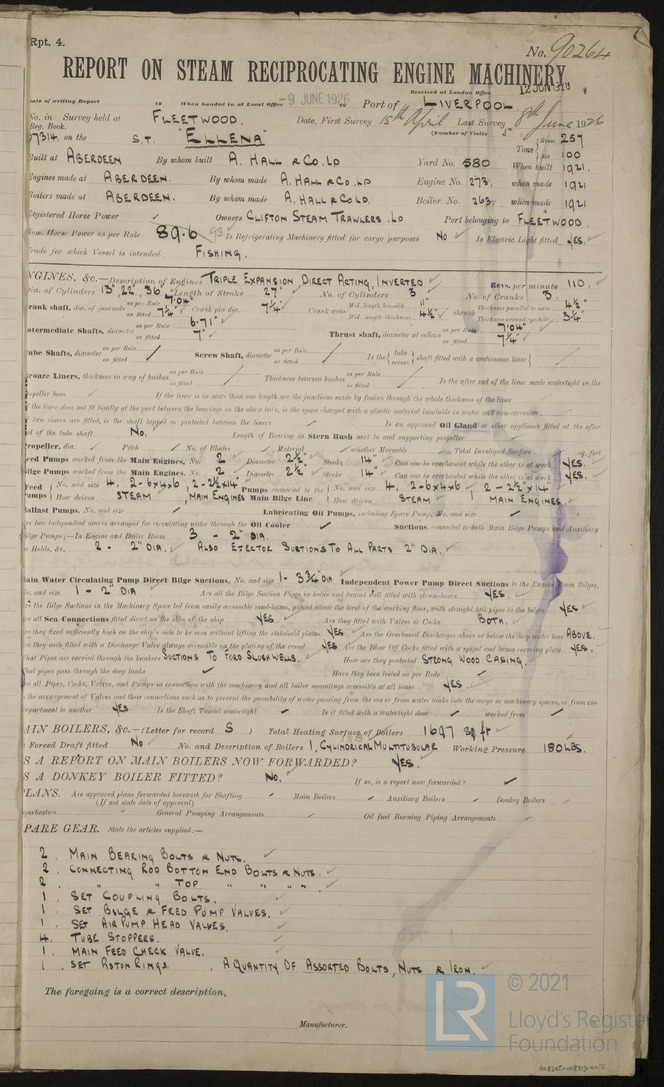 Rpt. 4.
No. 90264
REPORT ON STEAM RECIPROCATING ENGINE MACHINERY.
Received at London Office 12 JUN 1926
Date of writing Report 19 When handed in at Local Office -9 JUNE 1926 Port of LIVERPOOL
No. in Survey held at FLEETWOOD. Date, First Survey 15th April Last Survey 8th June 1926
Reg. Book. (Number of Visits 5)
on the S.T. "ELLENA" Tons Gross 257 Net 100
Built at ABERDEEN By whom built A. HALL & CO. LD Yard No. 580 When built 1921.
Engines made at ABERDEEN. By whom made A. HALL & CO. LD Engine No. 273. when made 1921
Boilers made at ABERDEEN. By whom made A. HALL & CO LD. Boiler No. 263 when made 1921
Registered Horse Power Owners CLIFTON STEAM TRAWLERS. LD Port belonging to FLEETWOOD.
Nom. Horse Power as per Rule 89.6 93 Is Refrigerating Machinery fitted for cargo purposes NO Is Electric Light fitted YES.
Trade for which Vessel is intended FISHING.
ENGINES, &c.—Description of Engines TRIPLE EXPANSION DIRECT ACTING, INVERTED Revs. per minute 110.
Dia. of Cylinders 13", 22", 36" Length of Stroke 27" No. of Cylinders 3 No. of Cranks 3.
Crank shaft, dia. of journals as per Rule 7.04" as fitted 7¼" Crank pin dia. 7¼" Crank webs Mid. length breadth 11" Mid. length thickness 4½" shrunk Thickness parallel to axis 4½" Thickness around eyehole 3¼"
Intermediate Shafts, diameter as per Rule 6.71" as fitted 7" Thrust shaft, diameter at collars as per Rule 7.04" as fitted 7¼"
Tube Shafts, diameter as per Rule as fitted Screw Shaft, diameter as per Rule as fitted Is the tube screw shaft fitted with a continuous liner
Bronze Liners, thickness in way of bushes as per Rule as fitted Thickness between bushes as per Rule as fitted Is the after end of the liner made watertight in the
propeller boss If the liner is in more than one length are the junctions made by fusion through the whole thickness of the liner
If the liner does not fit tightly at the part between the bearings in the stern tube, is the space charged with a plastic material insoluble in water and non-corrosive
If two liners are fitted, is the shaft lapped or protected between the liners Is an approved Oil Gland or other appliance fitted at the after
end of the tube shaft No. Length of Bearing in Stern Bush next to and supporting propeller
Propeller, dia. Pitch No. of Blades Material whether Moveable Total Developed Surface sq. feet
Feed Pumps worked from the Main Engines, No. 2 Diameter 2½" Stroke 14" Can one be overhauled while the other is at work YES.
Bilge Pumps worked from the Main Engines, No. 2 Diameter 2½" Stroke 14" Can one be overhauled while the other is at work YES.
Feed Pumps No. and size 4. 2-6x4x6 2-2½"x14" How driven STEAM, MAIN ENGINES Pumps connected to the Main Bilge Line No. and size 4. 2-6x4x6 2-2½"x14 How driven STEAM MAIN ENGINES.
Ballast Pumps, No. and size Lubricating Oil Pumps, including Spare Pump, No. and size
Are two independent means arranged for circulating water through the Oil Cooler Suctions, connected to both Main Bilge Pumps and Auxiliary
Bilge Pumps;—In Engine and Boiler Room 3 - 2" DIA.
In Holds, &c. 2 - 2" DIA. ALSO EJECTOR SUCTIONS TO ALL PARTS 2" DIA.
Main Water Circulating Pump Direct Bilge Suctions, No. and size 1 - 3¾ DIA Independent Power Pump Direct Suctions to the Engine Room Bilges,
No. and size 1 - 2" DIA Are all the Bilge Suction Pipes in holds and tunnel well fitted with strum-boxes YES.
Are the Bilge Suctions in the Machinery Space led from easily accessible mud-boxes, placed above the level of the working floor, with straight tail pipes to the bilges YES
Are all Sea Connections fitted direct on the skin of the ship YES Are they fitted with Valves or Cocks BOTH.
Are they fixed sufficiently high on the ship's side to be seen without lifting the stokehold plates YES Are the Overboard Discharges above or below the deep water line ABOVE.
Are they each fitted with a Discharge Valve always accessible on the plating of the vessel YES Are the Blow Off Cocks fitted with a spigot and brass covering plate YES.
What Pipes are carried through the bunkers SUCTIONS TO FORD SLUSHWELLS. How are they protected STRONG WOOD CASING.
What pipes pass through the deep tanks Have they been tested as per Rule
Are all Pipes, Cocks, Valves, and Pumps in connection with the machinery and all boiler mountings accessible at all times YES.
Is the arrangement of Valves and their connections such as to prevent the possibility of water passing from the sea or from water tanks into the cargo or machinery spaces, or from one
compartment to another YES Is the Shaft Tunnel watertight Is it fitted with a watertight door worked from
MAIN BOILERS, &c.—(Letter for record S) Total Heating Surface of Boilers 1697 sq ft
Is Forced Draft fitted NO No. and Description of Boilers 1, CYLINDRICAL MULTITUBULAR Working Pressure 180 LBS.
IS A REPORT ON MAIN BOILERS NOW FORWARDED? YES.
IS A DONKEY BOILER FITTED? NO. If so, is a report now forwarded?
PLANS. Are approved plans forwarded herewith for Shafting Main Boilers Auxiliary Boilers Donkey Boilers
(If not state date of approval)
Superheaters General Pumping Arrangements Oil fuel Burning Piping Arrangements
SPARE GEAR. State the articles supplied:—
2. MAIN BEARING BOLTS & NUTS.
2. CONNECTING ROD BOTTOM END BOLTS & NUTS.
2. " " TOP " " " ".
1. SET COUPLING BOLTS.
1. SET BILGE & FEED PUMP VALVES.
1. SET AIR PUMP HEAD VALVES.
4. TUBE STOPPERS.
1. MAIN FEED CHECK VALVE.
1. SET ASTON RINGS. A QUANTITY OF ASSORTED BOLTS, NUTS & IRON.
The foregoing is a correct description,
Manufacturer.
LR © 2021
Lloyd's Register
Foundation